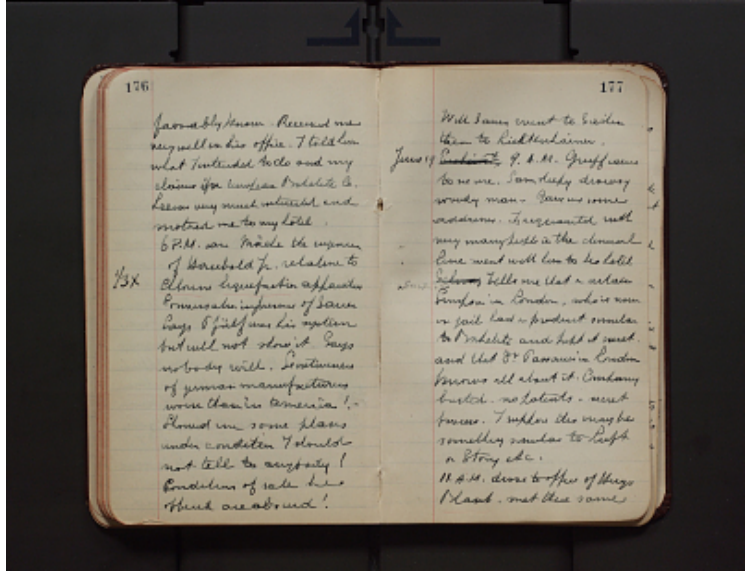 176
favorably known. Received me
very well in his office. I told him
what I intended to do and my
claims for European Bakelite Co.
Lee was very much interested and
motored me to my hotel.
6 P.M. saw the engineer
of Hourbold Jr. relative to
Chlorine liquefaction apparatus
1/3X
Conversation of Sauer
Says Pfeiff was his system
but will not show it. Says
nobody will. Secretiveness
of german manufacturers
worse than in America! -
Showed me some plans
under condition I should
not tell to anybody!
Conditions of sale he
offered are absurd!
177
With Sauer went to
then to Lichtenhainer.
June 19
9. A.M. Greiff came
to see me. Sam sleepy drowsy
windy man. Gave us some
addresses. Acquainted with
very many people in the chemical
line went with him to his hotel
Tells me that a certain
Simpson in London, who is now
in jail had a product similar
to Bakelite and kept it secret.
and that Dr. Passauer in London
knows all about it. Company
busted. no patents. secret
process. I suppose this may be
something similar to Luft
or Story etc.
11 A.M. drove to office of Hugo
Blank. met there some